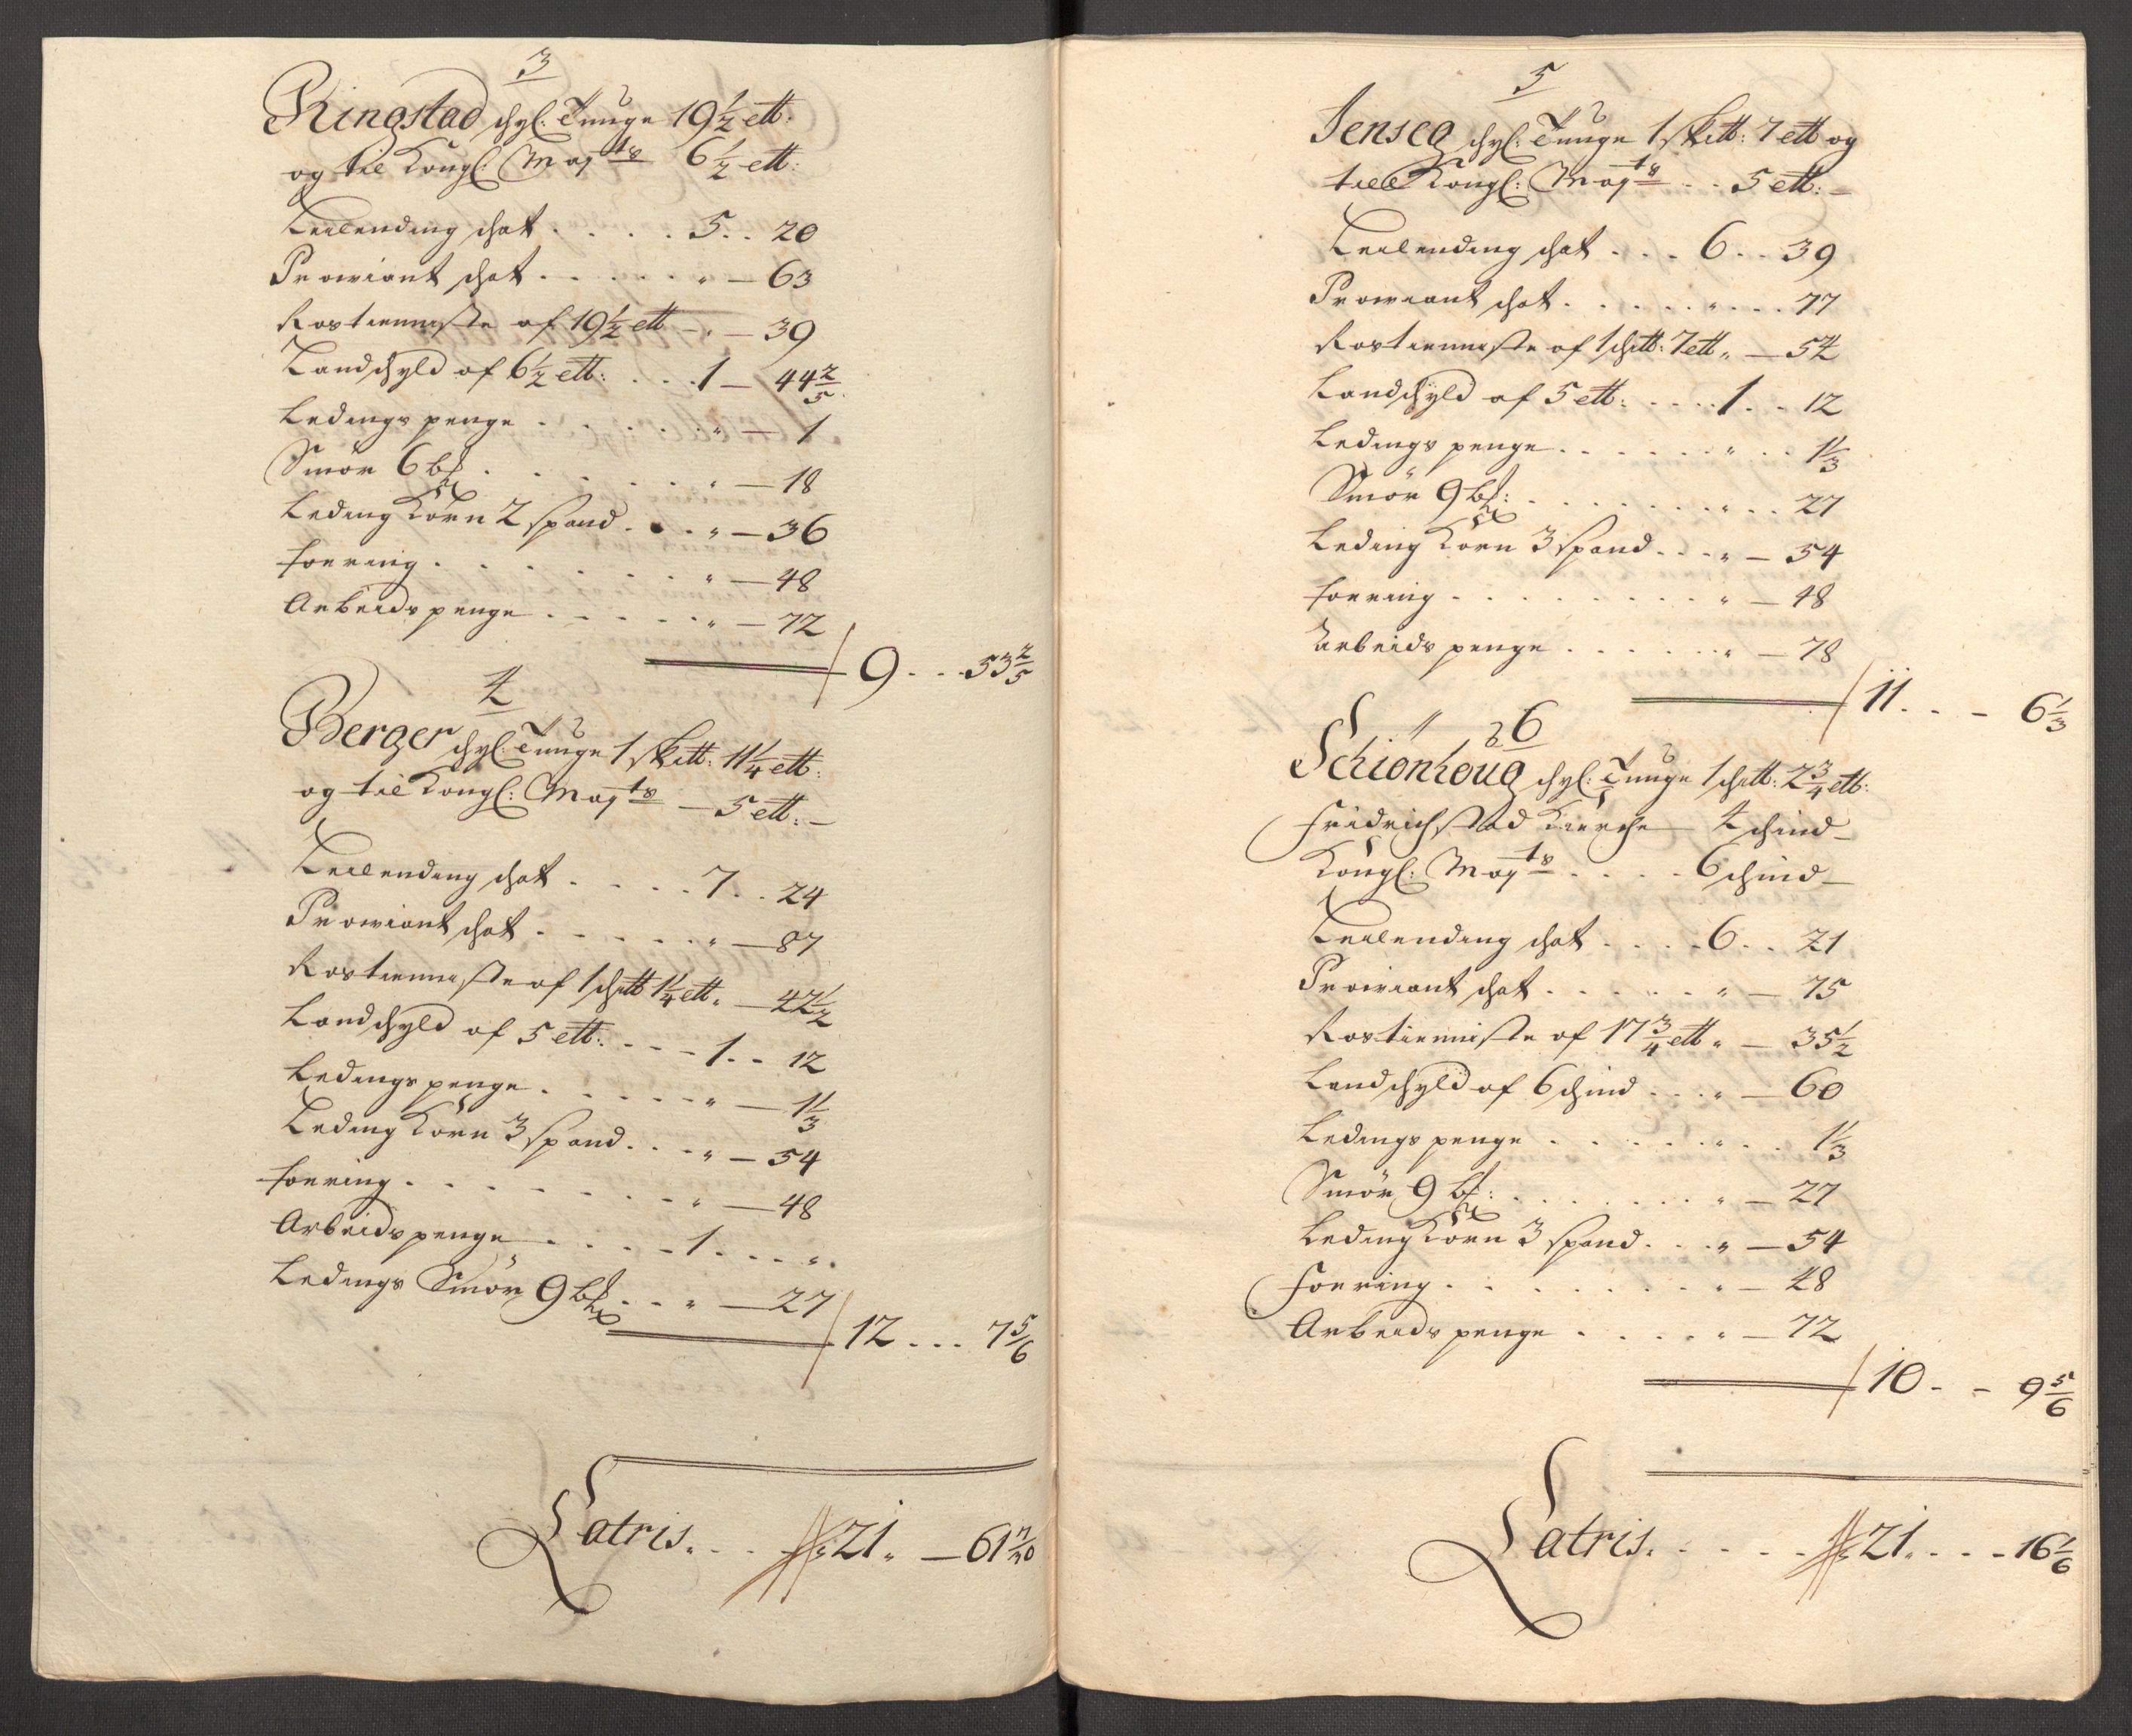 3
Ringstad schyl: Tunge 19½ ett:
og til Kongl: Maytˢ 6½ ett:
Leilending schat . . . . 5 . . 20
Proviant schat . . . . . . " — 63
Rostienniste af 19½ ett — " — 39
Landschyld af 6½ ett: . . . 1 — 44 2/5
Ledings penge . . . . . . " — 1
Smör 6 b . . . . . . . " — 18
Leding Korn 2 spand . . . " — 36
foering . . . . . . . . " — 48
Arbeids penge . . . . . " — 72
9 . . . 53 2/5
4
Berger schyl: Tunge 1 skett: 11¼ ett:
og til Kongl: Maytˢ — 5 ett: —
Leilending schat . . . . 7 . . 24
Proviant schat . . . . . . " — 87
Rostienniste af 1 schett 1¼ ett " — 42½
Landschyld af 5 ett: . . . - 1 . . 12
Ledings penge . . . . . . " — 1⅓
Leding Korn 3 spand . . . " — 54
foering . . . . . . . . " — 48
Arbeids penge . . . . - 1 . . . "
Ledings Smör 9 b . . . " — 27
12 . . . 7 5/6
Latris . . . 21 " — 61 7/30
5
Jenseg schyl: Tunge 1 skett: 7 ett og
till Kongl: Maytˢ . . 5 ett: —
Leilending schat . . . 6 . . 39
Proviant schat . . . . . . " . . . 77
Rostienniste af 1 schett: 7 ett " — 54
Landschyld af 5 ett: . . . . 1 . . 12
Ledings penge . . . . . . " . . 1⅓
Smör 9 b: . . . . . . . . " . . 27
Leding Korn 3 spand . . . " — 54
foering . . . . . . . . . " — 48
Arbeids penge . . . . . . " — 78
11 . . — 6⅓
6
Schionhoug schyl: Tunge 1 schett: 2¾ ett:
Fridrichstad Kierche 4 schind —
Kongl: Maytˢ . . . . 6 schind —
Leilending schat . . . . 6 . . 21
Proviant schat . . . . . . " — 75
Rostienniste af 17¾ ett " — 35½
Landschyld af 6 schind . . . " — 60
Ledings penge . . . . . . " . . 1⅓
Smör 9 b: . . . . . . . . " — 27
Leding Korn 3 spand . . . " — 54
foering . . . . . . . . . " — 48
Arbeids penge . . . . . " — 72
10 - - 9 5/6
Latris . . . . . 21 " . . . 16 1/6